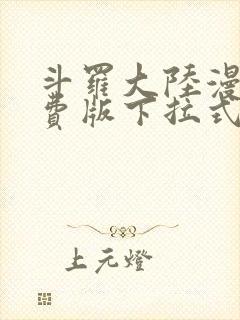 斗羅大陸漫
費版下拉式
上元燈